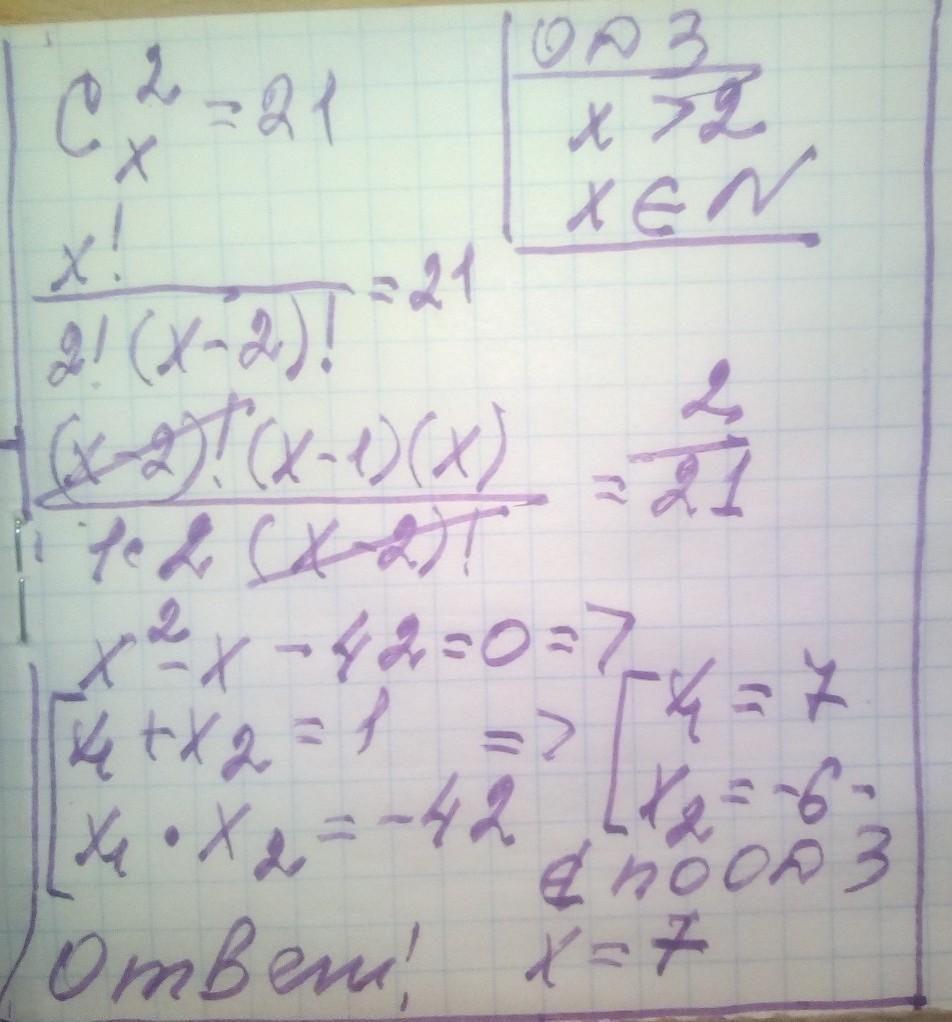 C²ₓ = 21
ОДЗ
x > 2
x ∈ N
x! / 2! (x-2)! = 21
(x-2)! (x-1)(x) / 1·2 (x-2)! = 2/21
x² - x - 42 = 0 =>
x₁ + x₂ = 1 =>
x₁ · x₂ = -42
x₁ = 7
x₂ = -6 -
∉ по ОДЗ
Ответ! x = 7